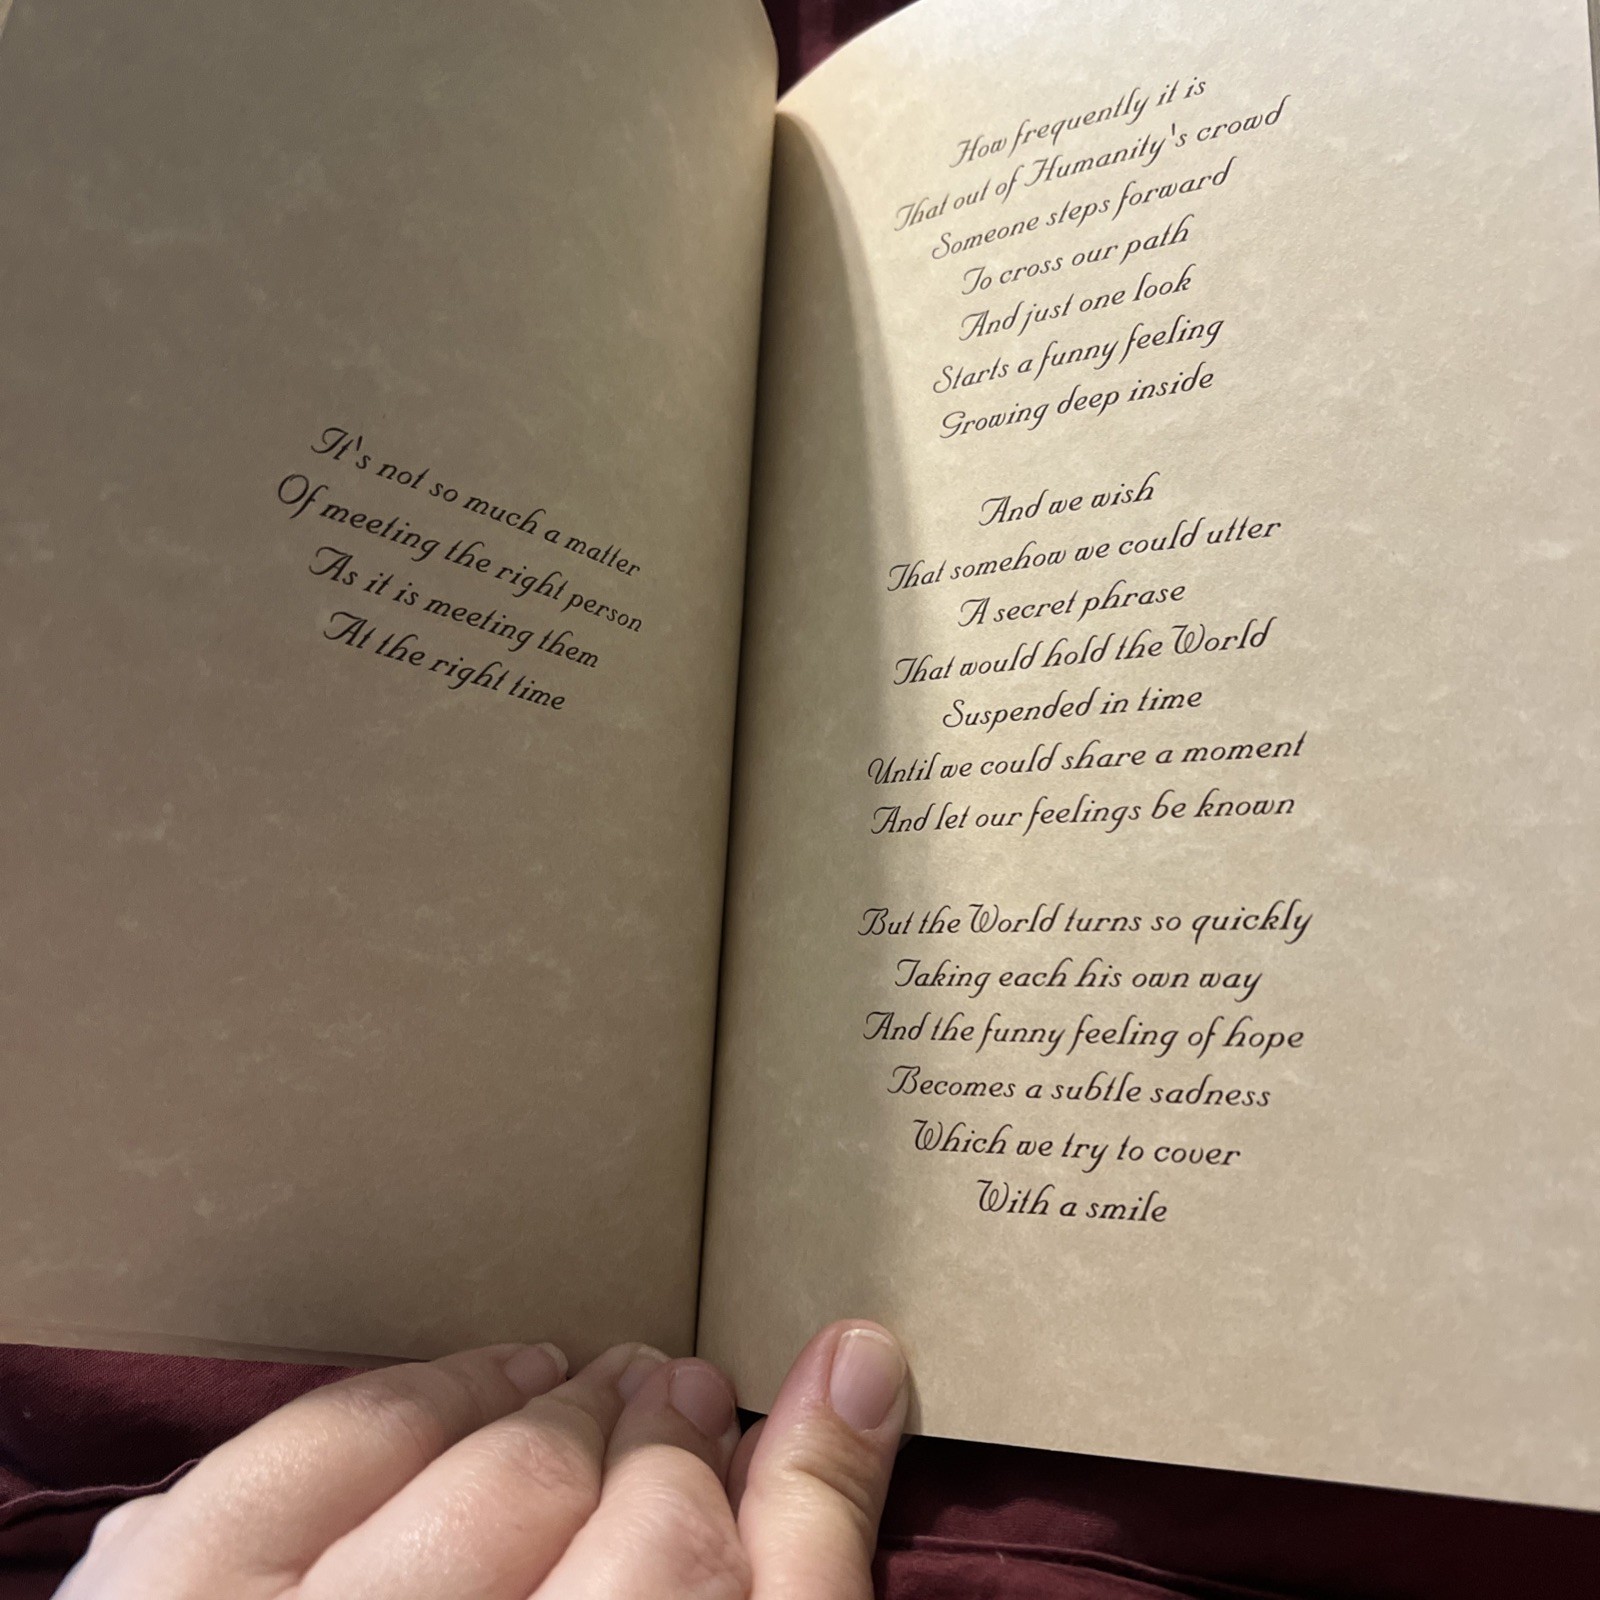 It's not so much a matter
Of meeting the right person
As it is meeting them
At the right time
How frequently it is
That out of Humanity's crowd
Someone steps forward
To cross our path
And just one look
Starts a funny feeling
Growing deep inside
And we wish
That somehow we could utter
A secret phrase
That would hold the World
Suspended in time
Until we could share a moment
And let our feelings be known
But the World turns so quickly
Taking each his own way
And the funny feeling of hope
Becomes a subtle sadness
Which we try to cover
With a smile